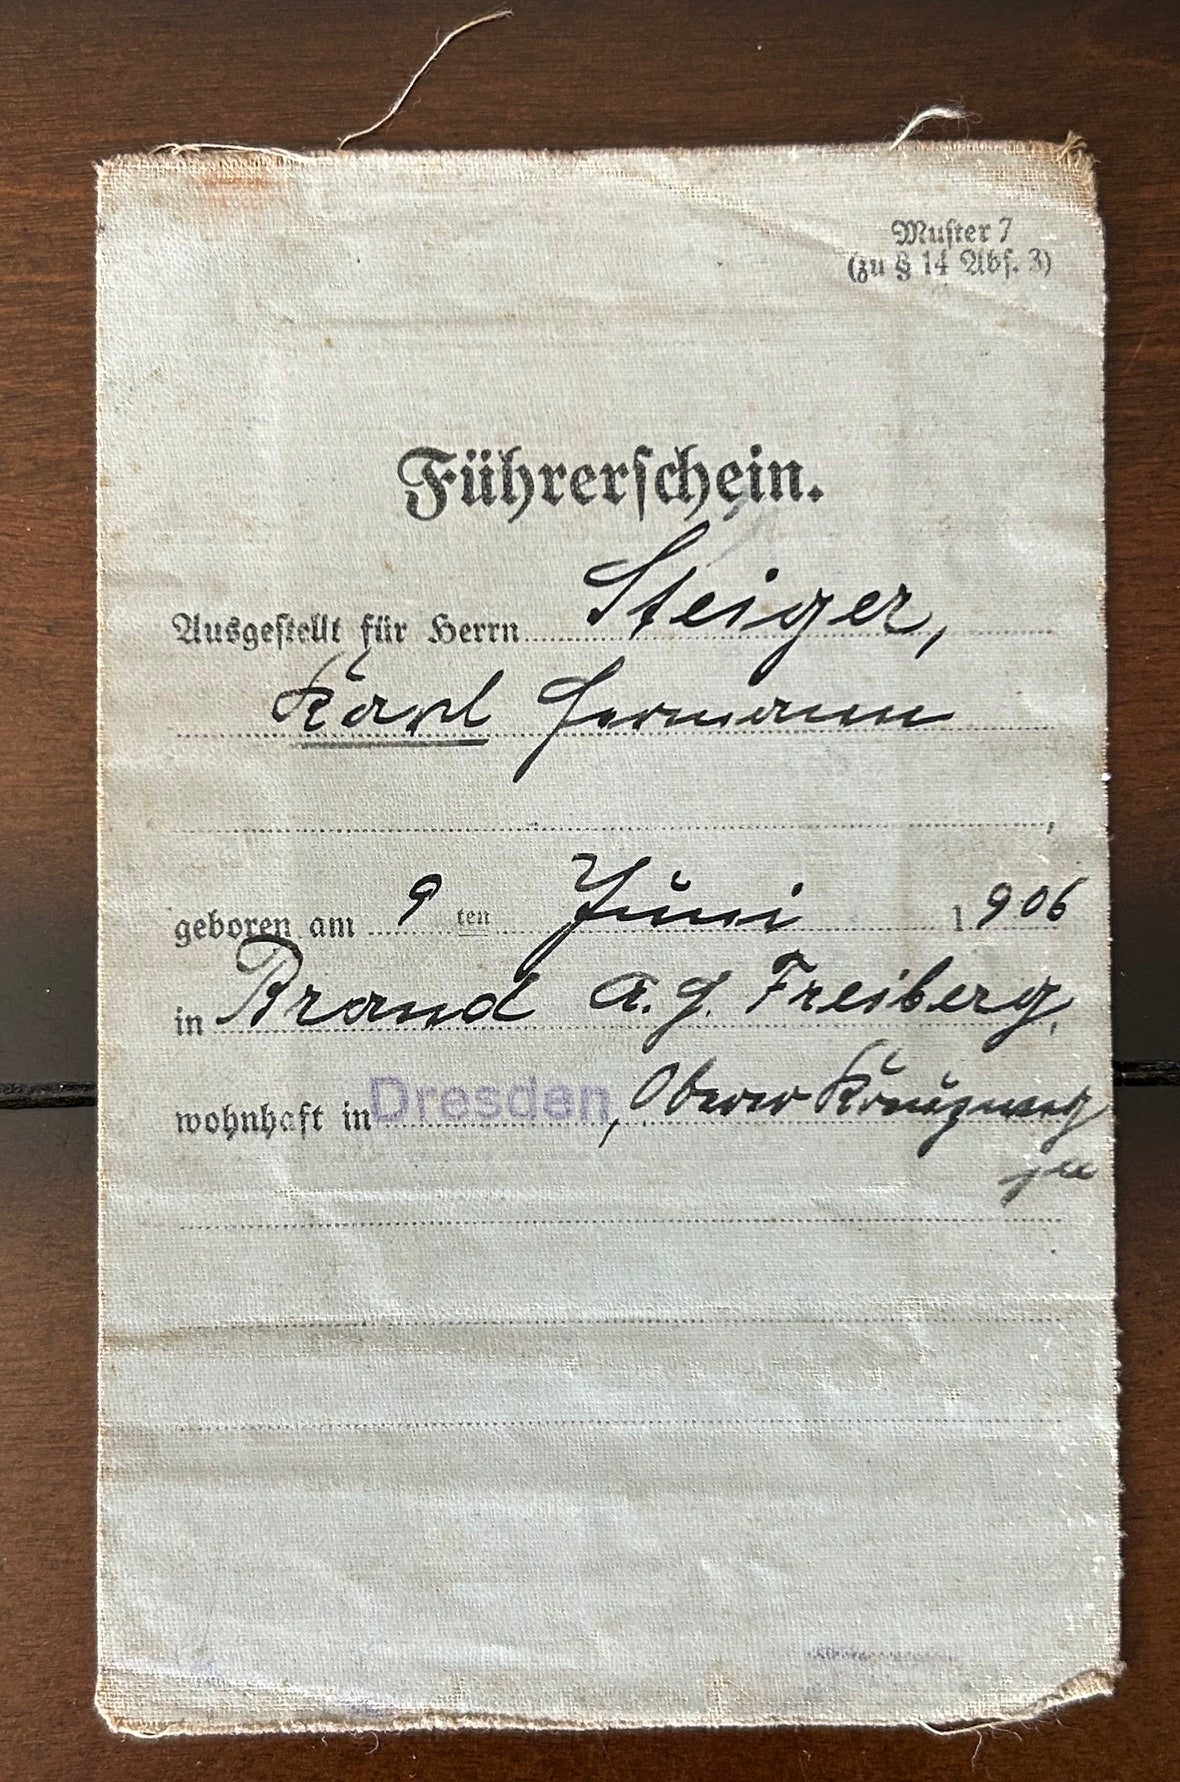 Muster 7
(zu § 14 Abs. 3)
Führerschein.
Ausgestellt für Herrn Steiger,
Karl Hermann
,
geboren am 9 ten Juni 1906
in Brand a. g. Freiberg,
wohnhaft in Dresden, Oberer Kreuzweg